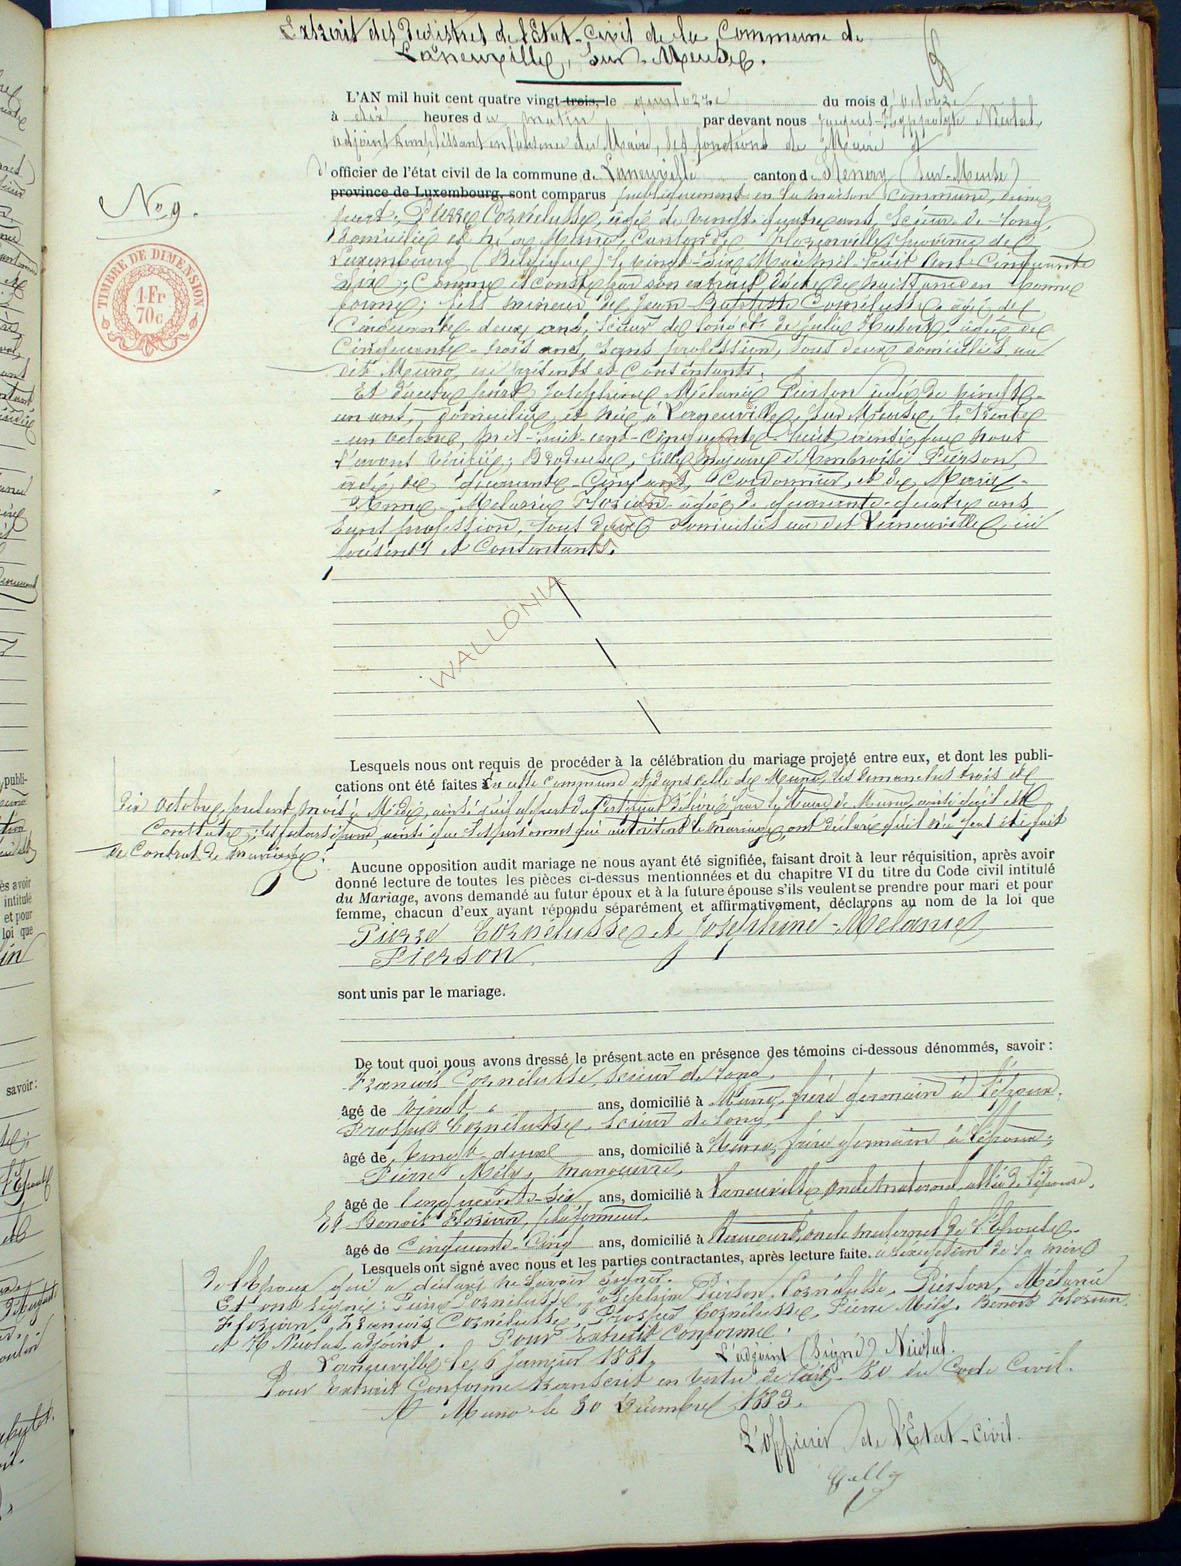 Extrait des Registres de l'Etat-Civil de la Commune de
Laneuville, sur Meuse.
L'AN mil huit cent quatre vingt trois, le quatorze du mois d'octobre
à dix heures du matin par devant nous Jacques-Hyppolyte Nicolas,
adjoint remplissant en l'absence du Maire, les fonctions de Maire &
d'officier de l'état civil de la commune de Laneuville canton de Stenay (sur-Meuse)
province de Luxembourg, sont comparus publiquement en la maison commune, d'une
part: Pierre Cornélusse, âgé de vingt-quatre ans, scieur de long,
domicilié et né à Muno, Canton de Florenville, province de
Luxembourg (Belgique) le vingt-six Mai mil huit cent cinquante
six; comme il conste par son extrait d'acte de naissance en bonne
forme; fils mineur de Jean-Baptiste Cornélusse âgé de
Cinquante deux ans, scieur de long et de Julie Hubert âgée de
Cinquante-trois ans, sans profession, tous deux domiciliés au
dit Muno, ici présents et Consentants.
Et d'autre part Joséphine Mélanie Pierson âgée de vingt-
un ans, domiciliée et née à Laneuville, sur Meuse, le trente
-un octobre, mil-huit-cent-cinquante-huit ainsi que nous
l'avons vérifié; Brodeuse, fille majeure d'Ambroise Pierson
âgé de quarante-cinq ans, Cordonnier, et de Marie-
Anne-Mélanie Florian âgée de quarante-quatre ans
sans profession, tous deux domiciliés au dit Laneuville, ici
présents et Consentants.
No 9.
TIMBRE DE DIMENSION
1 Fr
70c
WALLONIA
Lesquels nous ont requis de procéder à la célébration du mariage projeté entre eux, et dont les publi-
cations ont été faites En cette commune & dans celle de Muno, les dimanches trois et
dix octobre présent mois à Midi, ainsi qu'il appert du certificat délivré par le Maire de Muno,
Contrats; les futurs époux, ainsi que les personnes qui autorisent le mariage, ont déclaré qu'il n'a point été fait
de Contrat de mariage.
Aucune opposition audit mariage ne nous ayant été signifiée, faisant droit à leur réquisition, après avoir
donné lecture de toutes les pièces ci-dessus mentionnées et du chapitre VI du titre du Code civil intitulé
du Mariage, avons demandé au futur époux et à la future épouse s'ils veulent se prendre pour mari et pour
femme, chacun d'eux ayant répondu séparément et affirmativement, déclarons au nom de la loi que
Pierre Cornélusse et Joséphine-Mélanie
Pierson.
sont unis par le mariage.
De tout quoi nous avons dressé le présent acte en présence des témoins ci-dessous dénommés, savoir:
François Cornélusse, scieur de long,
âgé de vingt ans, domicilié à Muno, frère germain à l'époux,
Prosper Cornélusse, scieur de long,
âgé de vingt-deux ans, domicilié à Muno, frère germain à l'époux;
Pierre Mély, manoeuvre,
âgé de Cinquante-Six ans, domicilié à Laneuville, oncle maternel allié de l'épouse,
Et Benoît Florian, plafonneur,
âgé de Cinquante-Cinq ans, domicilié à oncle maternel de l'épouse.
Lesquels ont signé avec nous et les parties contractantes, après lecture faite. à l'exception de la mère
de l'Epoux qui a déclaré ne savoir signer.
Et ont signé: Pierre Cornélusse, Joséphine Pierson, Cornélusse, Pierson, Mélanie
Florian, François Cornélusse, Prosper Cornélusse, Pierre Mély, Benoît Florian
et H Nicolas, adjoint. Pour extrait conforme.
Laneuville, le 6 janvier 1881. L'adjoint (Signé) Nicolas.
Pour Extrait Conforme transcrit en vertu de l'art. 80 du Code Civil.
A Muno le 30 Décembre 1883.
L'officier de l'Etat-civil.